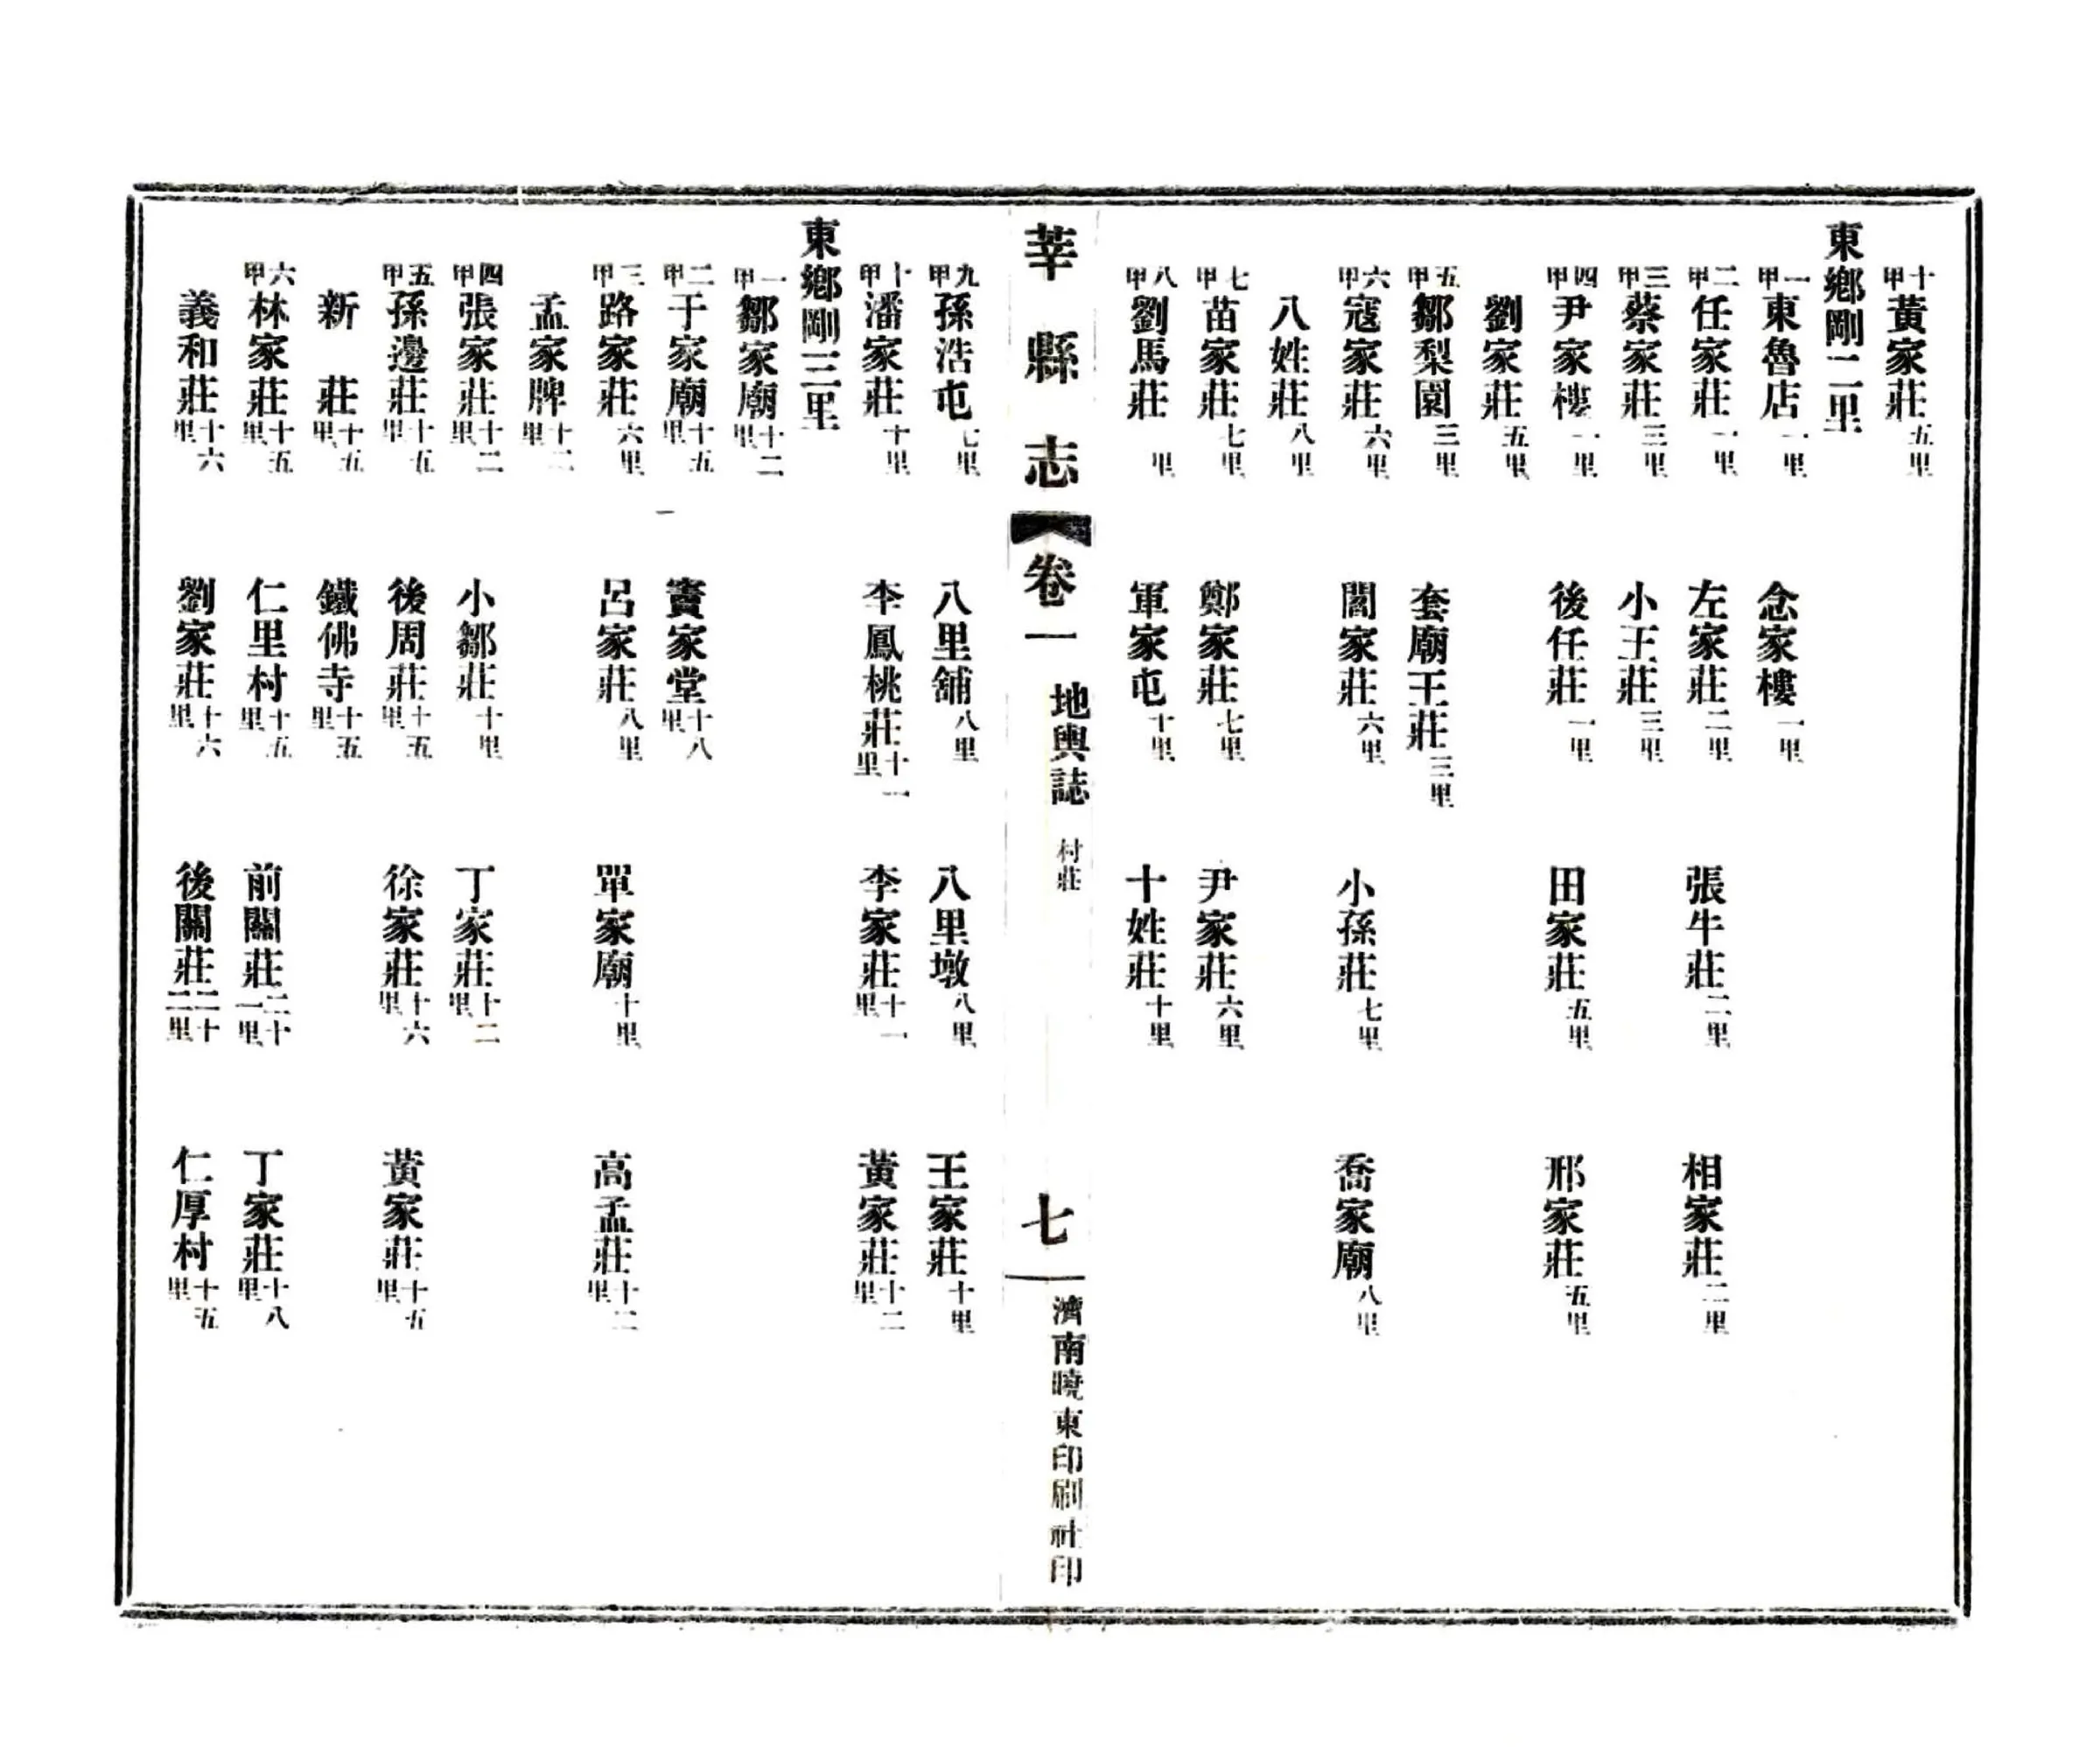 十甲黃家莊五里
東鄉剛二里
一甲東魯店一里　念家樓一里
二甲任家莊一里　左家莊二里　張牛莊二里　相家莊二里
三甲蔡家莊三里　小王莊三里
四甲尹家樓一里　後任莊一里　田家莊五里　邢家莊五里
劉家莊五里
五甲鄒梨園三里　套廟王莊三里
六甲寇家莊六里　閻家莊六里　小孫莊七里　喬家廟八里
八姓莊八里
七甲苗家莊七里　鄭家莊七里　尹家莊六里
八甲劉馬莊　里　軍家屯十里　十姓莊十里
莘縣志　卷一　地輿誌　村莊　七　濟南曉東印刷社印
九甲孫浩屯七里　八里舖八里　八里墩八里　王家莊十里
十甲潘家莊十里　李鳳桃莊十一里　李家莊十一里　黃家莊十二里
東鄉剛三里
一甲鄒家廟十二里
二甲于家廟十五里　竇家堂十八里
三甲路家莊六里　呂家莊八里　單家廟十里　高孟莊十二里
孟家牌十二里
四甲張家莊十二里　小鄒莊十里　丁家莊十二里
五甲孫邊莊十五里　後周莊十五里　徐家莊十六里　黃家莊十五里
新莊十五里　鐵佛寺十五里
六甲林家莊十五里　仁里村十五里　前關莊二十一里　丁家莊十八里
義和莊十六里　劉家莊十六里　後關莊二十二里　仁厚村十五里